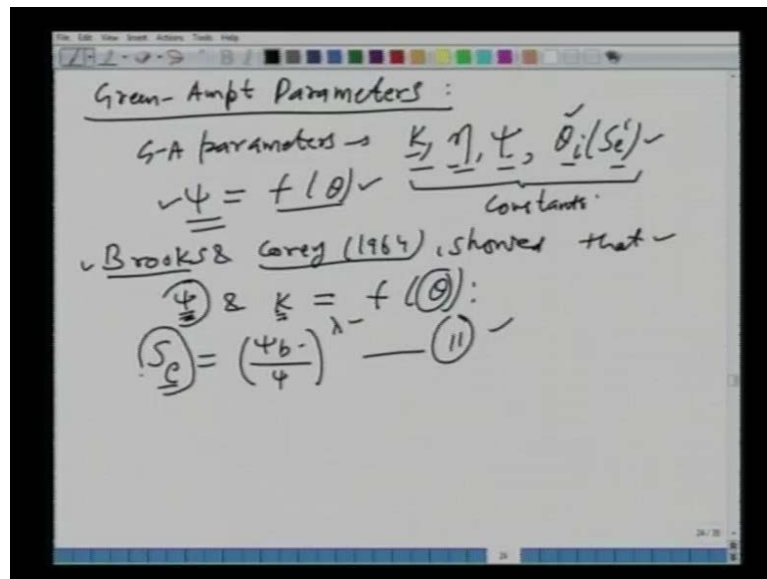 File Edit View Insert Actions Tools Help
Green-Ampt Parameters :
G-A parameters → K, η, ψ, θi(Se)
ψ = f(θ)
Constants.
Brooks & Corey (1964), showed that
ψ & K = f(θ):
Se = (ψb/ψ)^λ — (11)
24